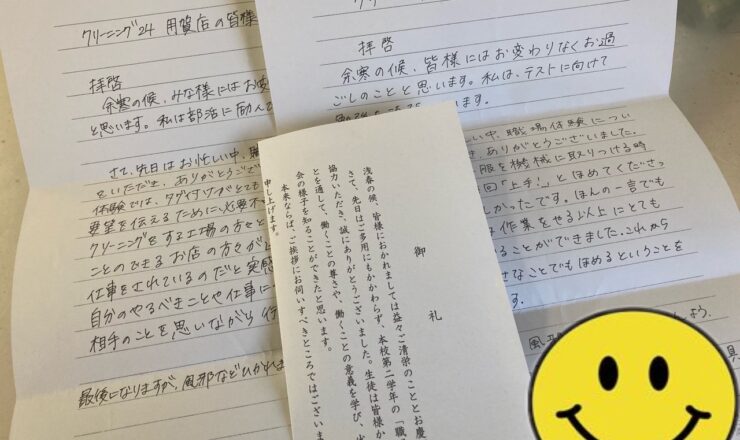 クリーニング24 用賀店の皆様
拝啓
余寒の候、みな様にはお変
と思います。私は部活に励んで
さて、先日はお忙しい中、職
をいただき、ありがとうござい
体験では、
要望を伝えるために、必要不
クリーニングをする工場の方々と
ことのできるお店の方々が
仕事をされているのだと実感
自分のやるべきことや仕事に
相手のことを思いながら行
最後になりますが、風邪などひかれま
クリ
拝啓
余寒の候、皆様にはお変わりなくお過
ごしのことと思います。私は、テストに向けて
います。
しい中、職場体験につい
き、ありがとうございました。
服を機械に取りつける時
回「上手!」とほめてくださっ
しかったです。ほんの一言でも
は作業をやる以上にとても
ることができました。これから
さなことでもほめるということを
す。
風邪
御礼
浅春の候、皆様におかれましては益々ご清栄のこととお慶
さて、先日はご多用にもかかわらず、本校第二学年の「職
協力いただき、誠にありがとうございました。生徒は皆様か
とを通して、働くことの尊さや、働くことの意義を学び、
会の様子を知ることができたと思います。
本来ならば、ご挨拶にお伺いすべきところではございま
申し上げます。